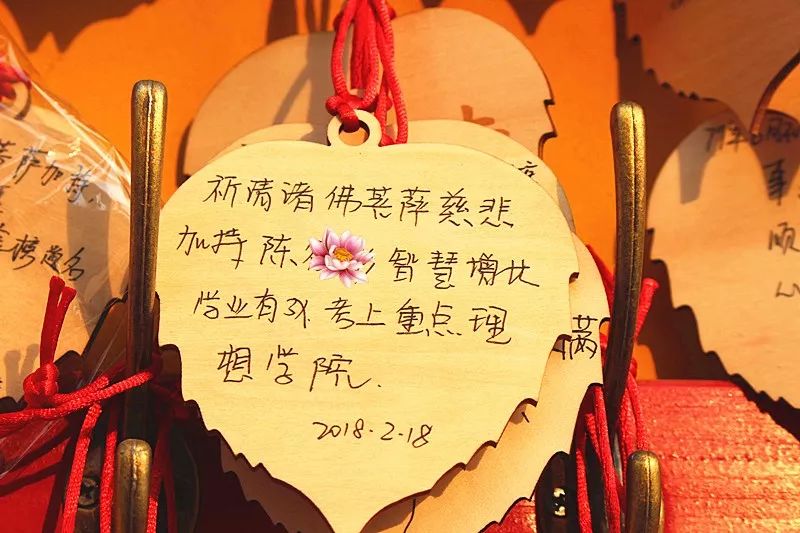 祈请诸佛菩萨慈悲
加持陈 智慧增长
学业有成 考上重点理
想学院.
2018.2.18
菩萨加持
榜题名
满
事
顺
心